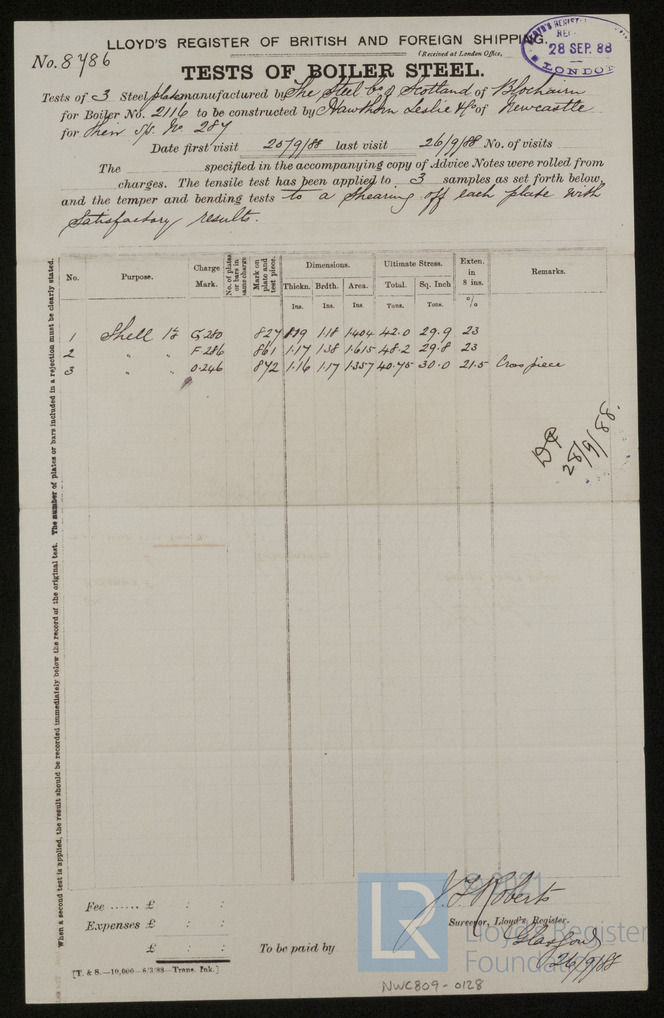 LLOYD'S REGISTER OF BRITISH AND FOREIGN SHIPPING.
No. 8486
(Received at London Office,
28 SEP. 88
LONDON
TESTS OF BOILER STEEL.
Tests of 3 Steel plates manufactured by The Steel Co of Scotland of Blochairn
for Boiler No. 2116 to be constructed by Hawthorn Leslie & Co of Newcastle
for their S/S. No 287
Date first visit 20/9/88 last visit 26/9/88 No. of visits
The specified in the accompanying copy of Advice Notes were rolled from
charges. The tensile test has been applied to 3 samples as set forth below,
and the temper and bending tests to a shearing off each plate with
satisfactory results.
No. Purpose. Charge Mark. No. of plates or bars in same charge Mark on plate and test piece. Dimensions. Ultimate Stress. Exten. in 8 ins. Remarks.
Thickn. Brdth. Area. Total. Sq. Inch %
Ins. Ins. Ins. Tons. Tons.
1 Shell G.280 827 1.19 1.18 1.404 42.0 29.9 23
2 " " F.286 861 1.17 1.38 1.615 48.2 29.8 23
3 " " O.246 872 1.16 1.17 1.357 40.75 30.0 21.5 Cross piece
28/9/88.
When a second test is applied, the result should be recorded immediately below the record of the original test. The number of plates or bars included in a rejection must be clearly stated.
Fee ...... £ : :
Expenses £ : :
£ : : To be paid by
J. Roberts
Surveyor, Lloyd's Register.
Glasgow
26/9/88
[T. & S.—10,000—6/3/88—Trans. Ink.]
LR
© 2021
Lloyd's Register
Foundation
NWC809-0128